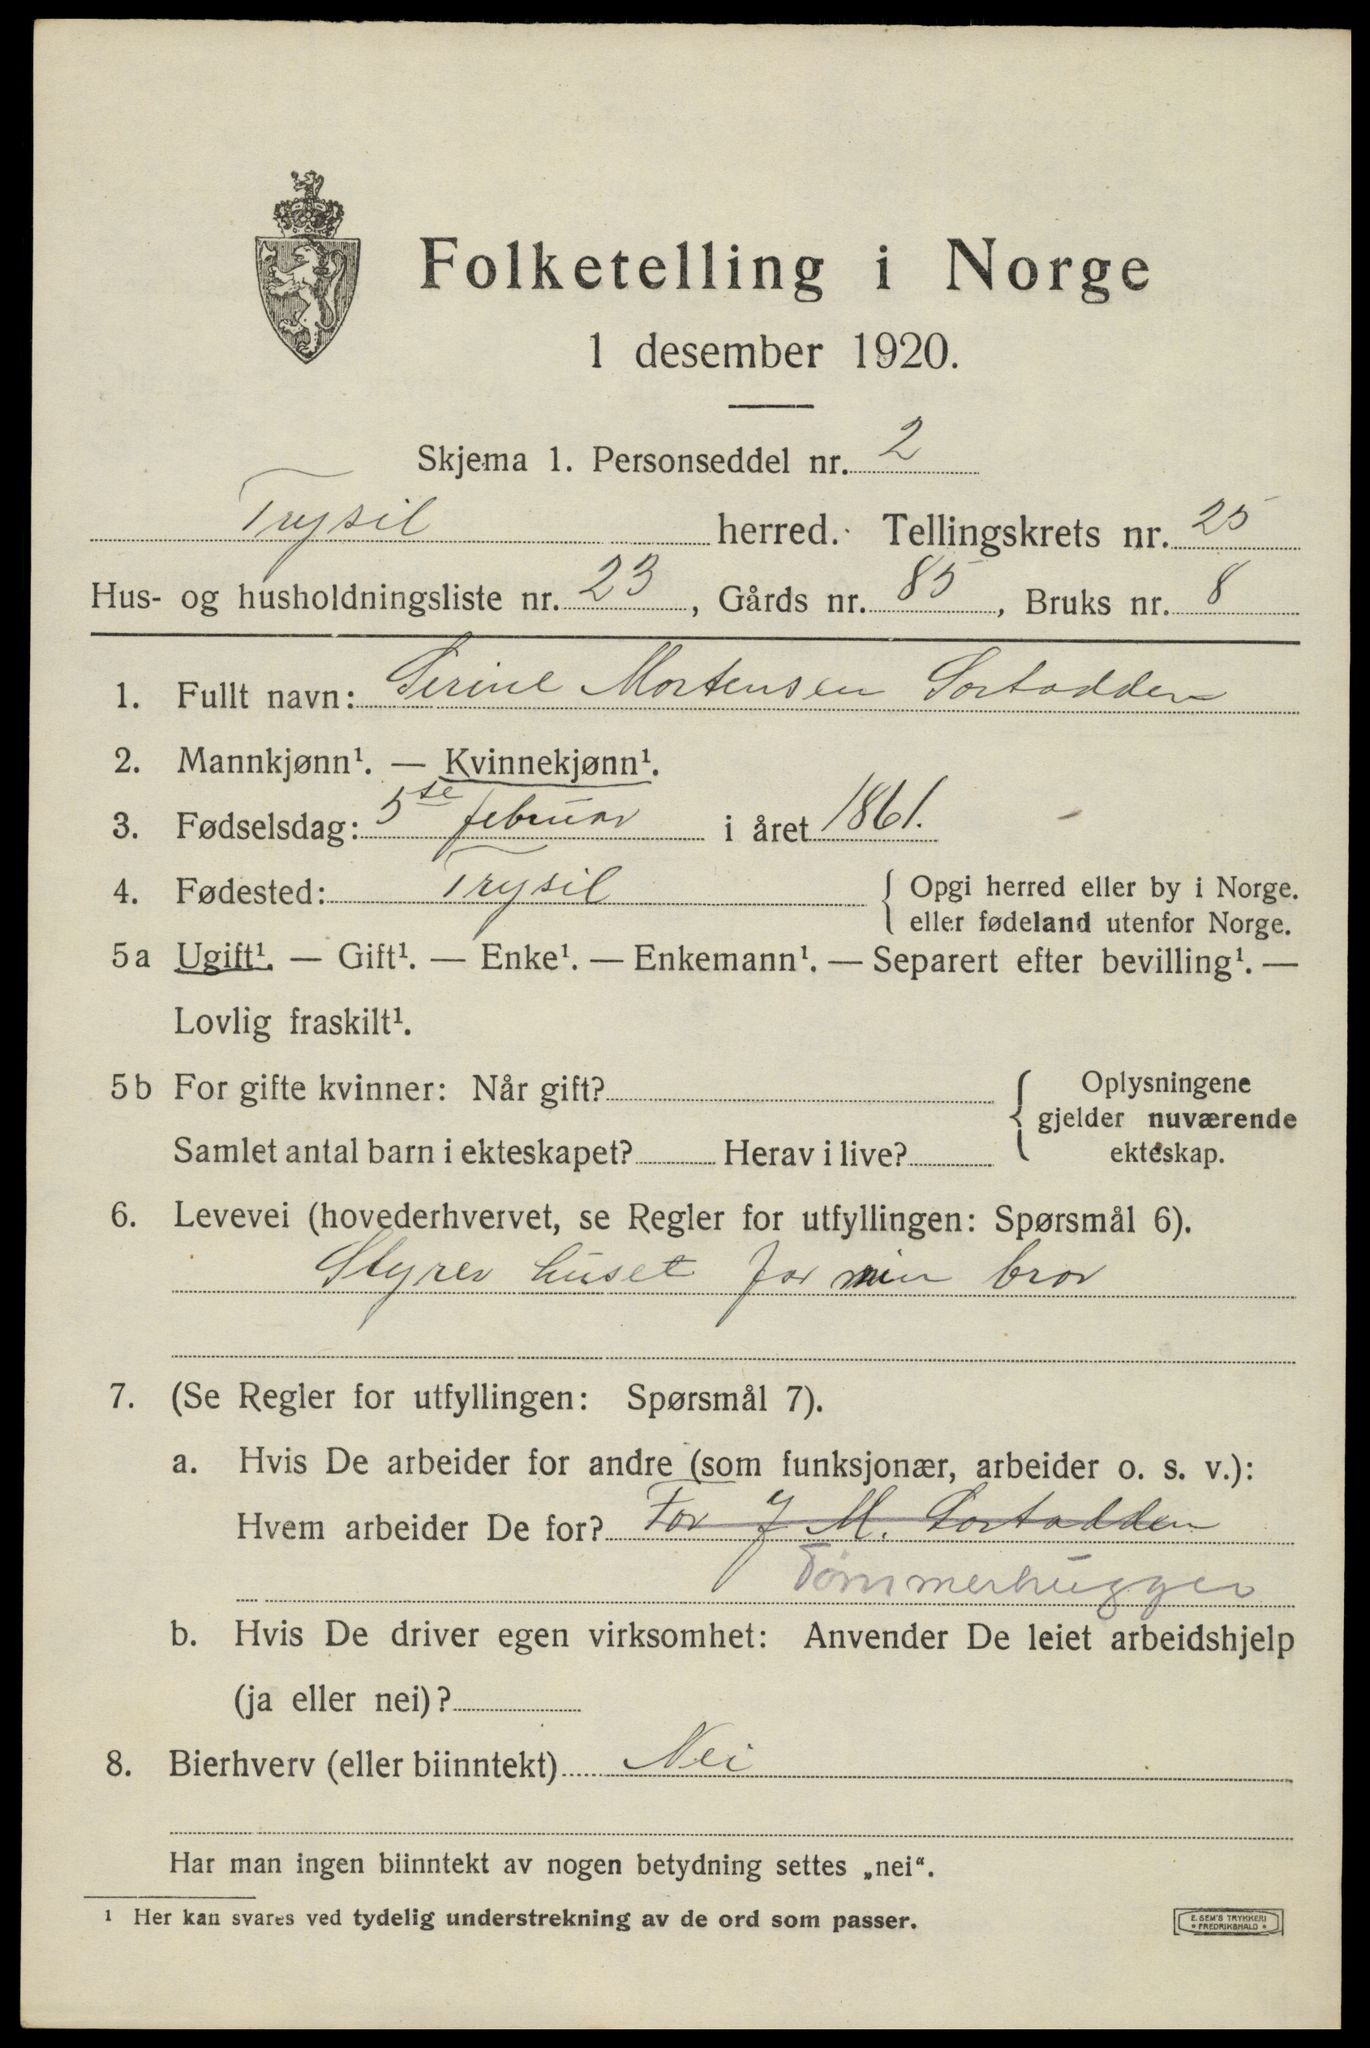 Folketelling i Norge
1 desember 1920.
Skjema 1. Personseddel nr. 2
Trysil herred. Tellingskrets nr. 25
Hus- og husholdningsliste nr. 23, Gårds nr. 85, Bruks nr. 8
1. Fullt navn: Serine Mortensen Sortodden
2. Mannkjønn¹. — Kvinnekjønn¹.
3. Fødselsdag: 5te februar i året 1861.
4. Fødested: Trysil { Opgi herred eller by i Norge.
eller fødeland utenfor Norge.
5a Ugift¹. — Gift¹. — Enke¹. — Enkemann¹. — Separert efter bevilling¹. —
Lovlig fraskilt¹.
5b For gifte kvinner: Når gift? { Oplysningene
gjelder nuværende
Samlet antal barn i ekteskapet? Herav i live? ekteskap.
6. Levevei (hovederhvervet, se Regler for utfyllingen: Spørsmål 6).
Styrer huset for min bror
7. (Se Regler for utfyllingen: Spørsmål 7).
a. Hvis De arbeider for andre (som funksjonær, arbeider o. s. v.):
Hvem arbeider De for? For J M. Sortodden
Tømmerhugger
b. Hvis De driver egen virksomhet: Anvender De leiet arbeidshjelp
(ja eller nei)?
8. Bierhverv (eller biinntekt) Nei
Har man ingen biinntekt av nogen betydning settes „nei“.
¹ Her kan svares ved tydelig understrekning av de ord som passer.
E. SEM'S TRYKKERI
• FREDRIKSHALD •